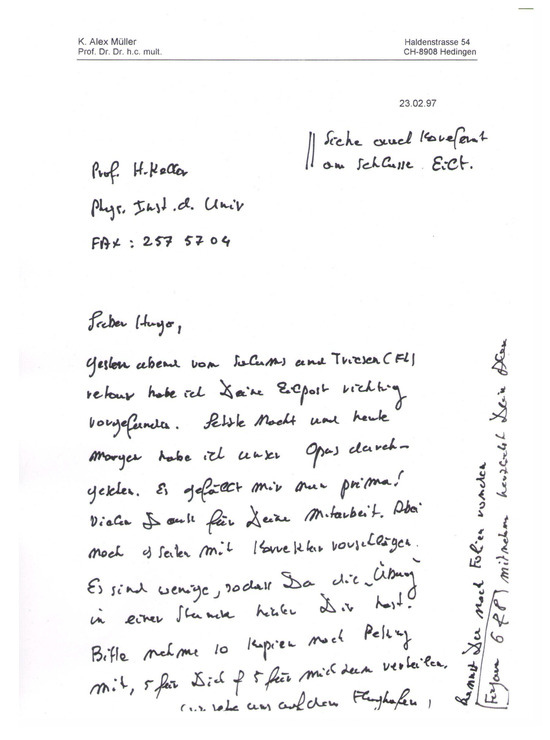 K. Alex Müller
Prof. Dr. Dr. h.c. mult.
Haldenstrasse 54
CH-8908 Hedingen
23.02.97
Siehe auch
am Schlusse
Prof. H. Keller
Phys. Inst. d. Univ
FAX : 257 57 04
Lieber Hugo,
Gestern abend vom und Triesen (FL)
retour habe ich Deine Eilpost richtig
vorgefunden. Letzte Nacht und heute
Morgen habe ich unser Opus durch-
gesehen. Es gefällt mir nun prima!
Vielen Dank für Deine Mitarbeit.
noch Seiten mit vorschlägen.
Es sind wenige, sodass Du die Übung
in einer Stunde hinter Dir hast.
Bitte nehme 10 Kopien nach
mit, 5 für Dich & 5 für mich zum verteilen.
uns auf dem Flughafen,
kannst Du noch Folien von den
Figuren 6 & 8 mitnehmen herzlichst Dein Alex